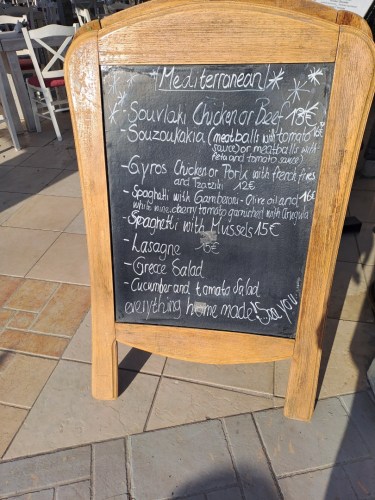 Mediterranean
- Souvlaki Chicken or Beef 13€
- Souzoukakia (meatballs with tomato 16€
sauce) or meatballs with
feta and tomato sauce)
- Gyros Chicken or Pork with french fries
and Tzatziki 12€
- Spaghetti with Gamberoni - Olive oil and 16€
white wine, cherry tomato garnished with Arugula
- Spaghetti with Mussels 15€
- Lasagne 15€
- Greece Salad
- Cucumber and tomato Salad
everything home made for you